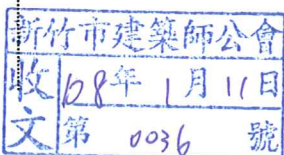 新竹市建築師公會
收文
108年1月11日
第 0036 號